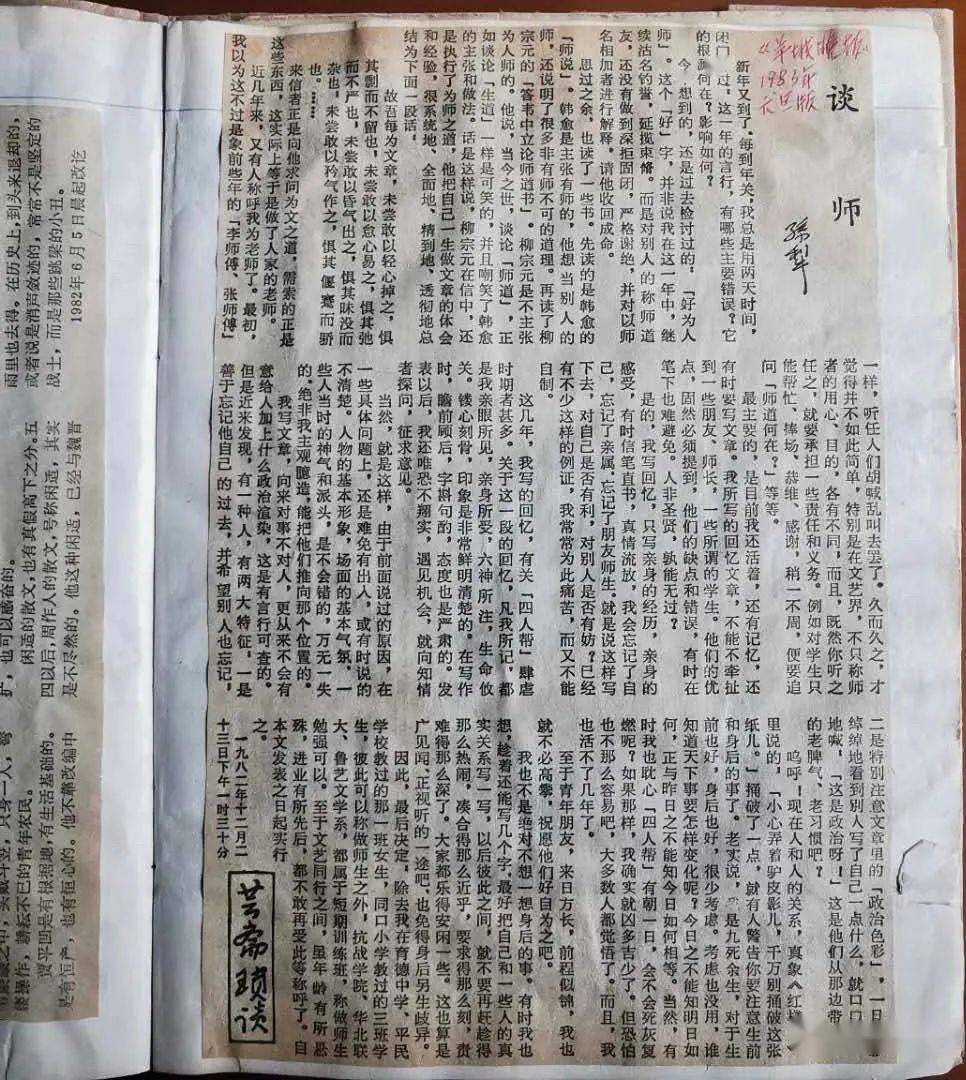 谈师
孙犁
《羊城晚报》
1983年
元旦版
新年又到了。每到年关，我总是用两天时间，
闭门 过，这一年的言行，有哪些主要错误？它
的根 何在？影响如何？
今 想到的，还是过去检讨过的：“好为人
师”。这个「好」字，并非说我在这一年中，继
续沽名钓誉，延揽束脩。而是对别人的称师道
友，还没有做到深拒固闭，严格谢绝，并对以师
名相加者进行解释，请他收回成命。
思过之余，也读了一些书。先读的是韩愈的
「师说」。韩愈是主张有师的，他想当别人的
师，还说明了很多非有师不可的道理。再读了柳
宗元的「答韦中立论师道书」。柳宗元是不主张
为人师的。他说，当今之世，谈论「师道」，正
如谈论「生道」一样是可笑的，并且嘲笑了韩愈
的主张和做法。话是这样说，柳宗元在信中，还
是执行了为师之道，他把自己一生做文章的体会
和经验，很系统地、全面地、精到地、透彻地总
结为下面一段话。
故吾每为文章，未尝敢以轻心掉之，惧
其剽而不留也，未尝敢以怠心易之，惧其弛
而不严也，未尝敢以昏气出之，惧其昧没而
杂也，未尝敢以矜气作之，惧其偃蹇而骄
也。……
来信者正是向他求问为文之道，需索的正是
这些东西，这实际上等于是做了人家的老师。
近几年来，又有人称呼我为老师了。最初，
我以为这不过是象前些年的「李师傅、张师傅」
一样，听任人们胡喊乱叫去罢了。久而久之，才
觉得并不如此简单，特别是在文艺界，不只称师
者的用心、目的，各有不同，而且，既然你听之
任之，就要承担一些责任和义务。例如对学生只
能帮忙、捧场、恭维、感谢，稍一不周，便要追
问「师道何在？」等等。
最主要的，是目前我还活着，还有记忆，还
有时要写文章。我所写的回忆文章，不能不牵扯
到一些朋友、师长，一些所谓的学生。他们的优
点，固然必须提到，他们的缺点和错误，有时在
笔下也难避免。人非圣贤，孰能无过？
是的，我写回忆，只写亲身的经历，亲身的
感受，有时信笔直书，真情流放，我会忘记了自
己，忘记了亲属，忘记了朋友师生。就是说这样写
下去，对自己是否有利，对别人是否有妨？已经
有不少这样的例证，我常常为此痛苦，而又不能
自制。
这几年，我写的回忆，有关「四人帮」肆虐
时期者甚多。关于这一段的回忆，凡我所记，都
是我亲眼所见，亲身所受，六神所注，生命攸
关。镂心刻骨，印象是非常鲜明清楚的。在写作
时，瞻前顾后，字斟句酌，态度也是严肃的。发
表以后，我还唯恐不翔实，遇见机会，就向知情
者探问，征求意见。
当然，就是这样，由于前面说过的原因，在
一些具体问题上，还是难免有出入，或有时说的
不清楚。人物的基本形象，场面的基本气氛，一
些人当时的神气和派头，是不会错的，万无一失
的，绝非我主观臆造，能把他们推向那个位置的。
我写文章，向来对事不对人，更从来不会有
意给人加上什么政治渲染，这是有言行可查的。
但是近来发现，有一种人，有两大特征，一是
善于忘记他自己的过去，并希望别人也忘记，
二是特别注意文章里的「政治色彩」，一旦
绰绰地看到别人写了自己一点什么，就口口
地喊，「这是政治呀！」这是他们从那边带
的老脾气、老习惯吧？
呜呼！现在人和人的关系，真象《红楼
里说的，「小心弄着驴皮影儿，千万别捅破这张
纸儿。」捅破了一点，就有人警告你要注意生前
和身后的事了。老实说， 是九死余生，对于生
前也好，身后也好，很少考虑。考虑也没用，谁
知道天下事要怎样变化呢？今日之不能知明日如
何，正与昨日之不能知今日如何相等。当然，有
时我也耽心「四人帮」有朝一日，会不会死灰复
燃呢？如果那样，我确实就凶多吉少了。但恐怕
也不那么容易吧，大多数人都觉悟了。而且，我
也活不了几年了。
至于青年朋友，来日方长，前程似锦，我也
就不必高攀，祝愿他们好自为之吧。
我也不是绝对不想一想身后的事。有时我也
想，趁着还能写几个字，最好把自己和一些人的真
实关系写一写，以后彼此之间，就不要再赶趁得
那么热闹，凑合得那么近乎，要求得那么刻，责
难得那么深了。大家都乐得安闲一些。这也算是
广见闻、正视听的一途吧，也免得身后另生歧异。
因此，最后决定，除去我在育德中学、平民
学校教过的那一班女生，同口小学教过的三班学
生，彼此可以称做师生之外，抗战学院、华北联
大、鲁艺文学系，都属于短期训练班，称做师生
勉强可以。至于文艺同行之间，虽年龄有所悬
殊，进业有所先后，都不敢再受此等称呼了。自
本文发表之日起实行
之。
一九八二年十二月二
十三日下午一时三十分
芸斋琐谈
雨里也去得。在历史上，到头来退却的，
或者说是消声敛迹的，常常不是坚定的
战士，而是那些跳梁的小丑。
1982年6月5日晨起改讫
，也可以感奋的。
闲适的散文，也有真假高下之分。五
四以后，周作人的散文，号称闲适，其实
是不尽然的。他这种闲适，已经与魏晋
，只身一人，弯
膝操作，耕耘不已的青年农民。
贾平凹是有根据地，有生活基础的。
是有恒产，也有恒心的。他不靠改编中